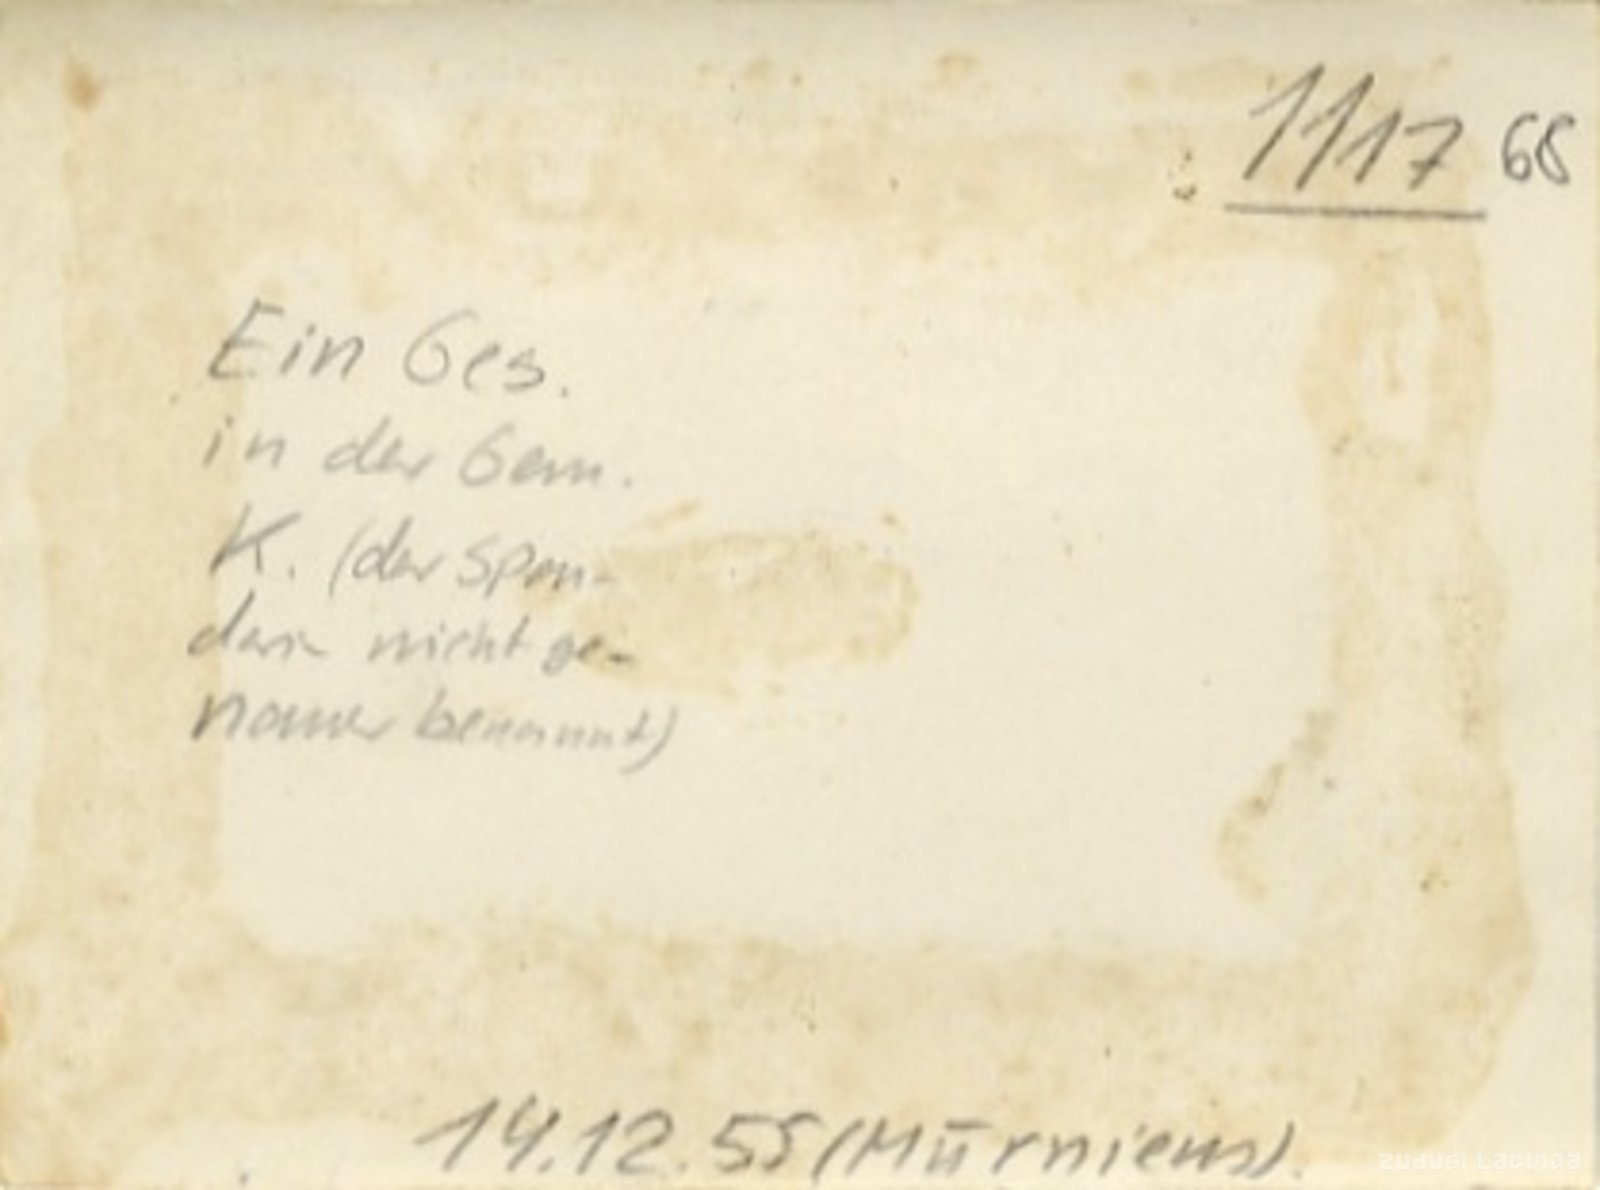 1117 68
Ein Ges.
in der Gem.
K. (der Spen-
nicht ge-
benannt)
14.12.55 (Mūrnieus).
ZUDUSI LATVIJA